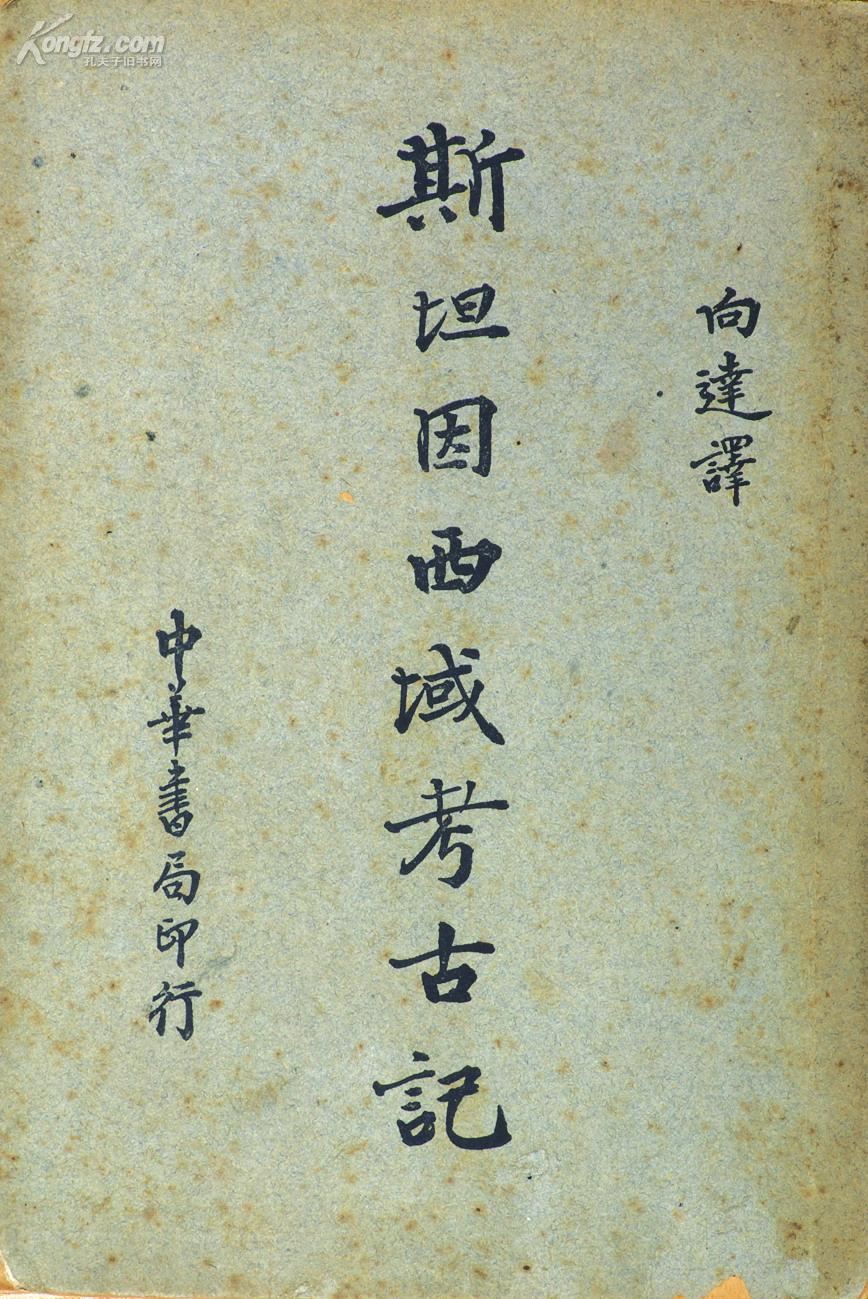 Kongfz.com
孔夫子旧书网
向達譯
斯坦因西域考古記
中華書局印行